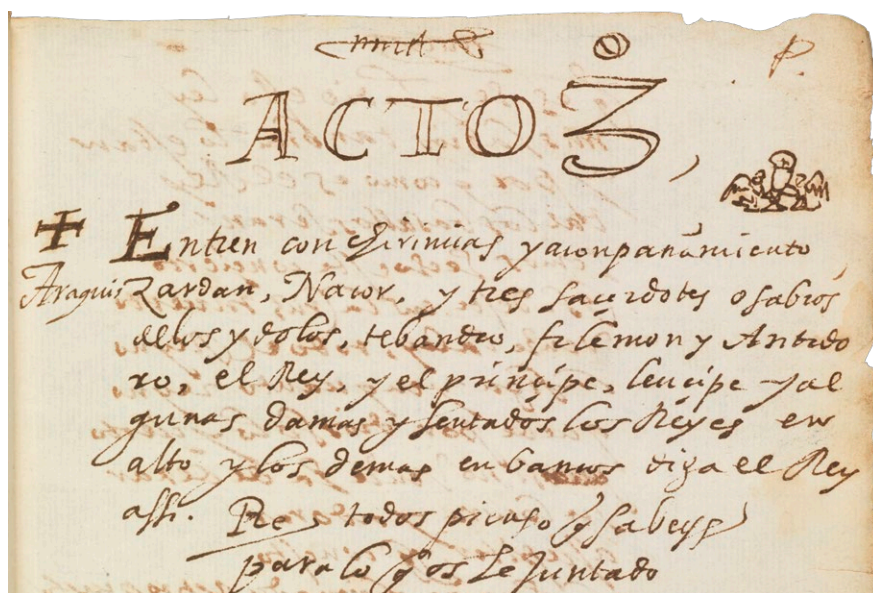 P.
ACTO 3º,
Entren con chirimias y aconpañamiento,
Araquis Zardan, Nacor, y tres sacerdotes o sabios
de los ydolos, tebandro, filemon y Antido
ro, el Rey, y el principe, leucipe y al
gunas damas y sentados los Reyes en
alto y los demas en bancos diga el Rey
assi. Re todos pienso q sabeys
para lo q os he juntado